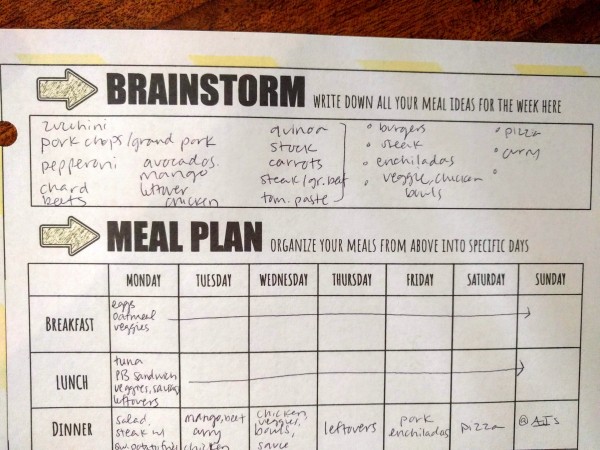 BRAINSTORM WRITE DOWN ALL YOUR MEAL IDEAS FOR THE WEEK HERE
zucchini
pork chops/grand pork
pepperoni avocados
mango
chard leftover
beets chicken
quinoa
stock
carrots
steak/gr. beef
tom. paste
• burgers
• steak
• enchiladas
• veggie, chicken
bowls
• pizza
• curry
•
MEAL PLAN ORGANIZE YOUR MEALS FROM ABOVE INTO SPECIFIC DAYS
MONDAY TUESDAY WEDNESDAY THURSDAY FRIDAY SATURDAY SUNDAY
BREAKFAST
eggs
oatmeal
veggies
LUNCH
tuna
PB sandwich
veggies,
leftovers
DINNER
salad,
steak w/
mango, beet
curry
chicken
chicken,
veggies,
bowls,
sauce
leftovers
pork
enchiladas
pizza
@ AJ's